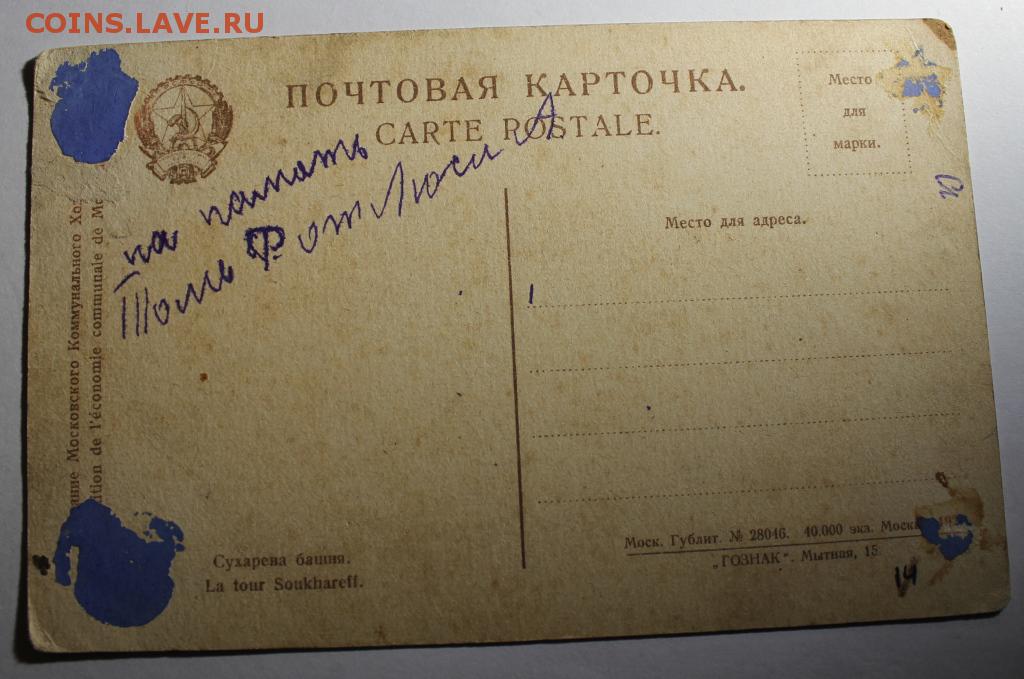 COINS.LAVE.РУ
ПОЧТОВАЯ КАРТОЧКА.
CARTE POSTALE.
Место
для
марки.
на память
Толе Ф от Люси А
Место для адреса.
Московского Коммунального
de l'économie communale de
Сухарева башня.
La tour Soukhareff.
Моск. Гублит. № 28046. 40.000 экз. Москва
„ГОЗНАК“. Мытная, 15
14